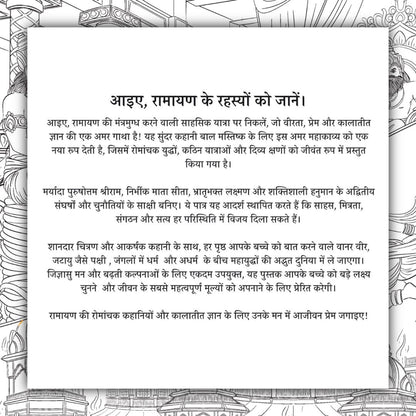 आइए, रामायण के रहस्यों को जानें।
आइए, रामायण की मंत्रमुग्ध करने वाली साहसिक यात्रा पर निकलें, जो वीरता, प्रेम और कालातीत
ज्ञान की एक अमर गाथा है! यह सुंदर कहानी बाल मस्तिष्क के लिए इस अमर महाकाव्य को एक
नया रूप देती है, जिसमें रोमांचक युद्धों, कठिन यात्राओं और दिव्य क्षणों को जीवंत रूप में प्रस्तुत
किया गया है।
मर्यादा पुरुषोत्तम श्रीराम, निर्भीक माता सीता, भ्रातृभक्त लक्ष्मण और शक्तिशाली हनुमान के अद्वितीय
संघर्षों और चुनौतियों के साक्षी बनिए। ये पात्र यह आदर्श स्थापित करते हैं कि साहस, मित्रता,
संगठन और सत्य हर परिस्थिति में विजय दिला सकते हैं।
शानदार चित्रण और आकर्षक कहानी के साथ, हर पृष्ठ आपके बच्चे को बात करने वाले वानर वीर,
जटायु जैसे पक्षी , जंगलों में धर्म और अधर्म के बीच महायुद्धों की अद्भुत दुनिया में ले जाएगा।
जिज्ञासु मन और बढ़ती कल्पनाओं के लिए एकदम उपयुक्त, यह पुस्तक आपके बच्चे को बड़े लक्ष्य
चुनने और जीवन के सबसे महत्वपूर्ण मूल्यों को अपनाने के लिए प्रेरित करेगी।
रामायण की रोमांचक कहानियों और कालातीत ज्ञान के लिए उनके मन में आजीवन प्रेम जगाइए!